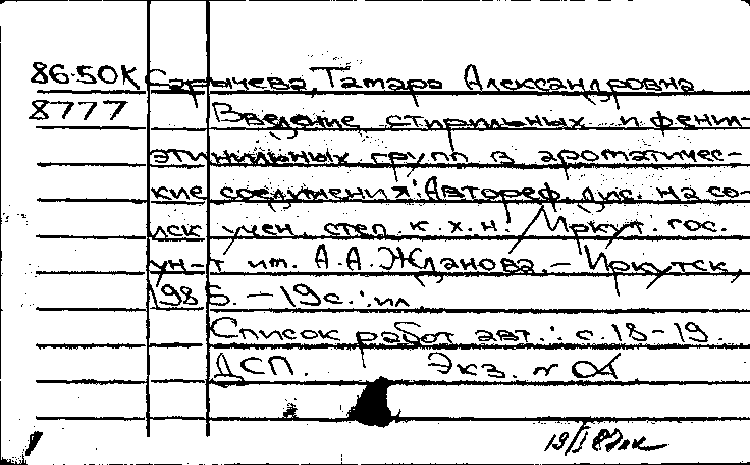 86-50К Сарычева, Тамара Александровна.
8777 Введение стирильных и фенил-
этинильных групп в ароматичес-
кие соединения: Автореф. дис. на со-
иск учен. степ. к. х. н. / Иркут. гос.
ун-т им. А. А. Жданова. – Иркутск,
1985. – 19 с. : ил.
Список работ авт.: с. 18-19.
ДСП. Экз. №